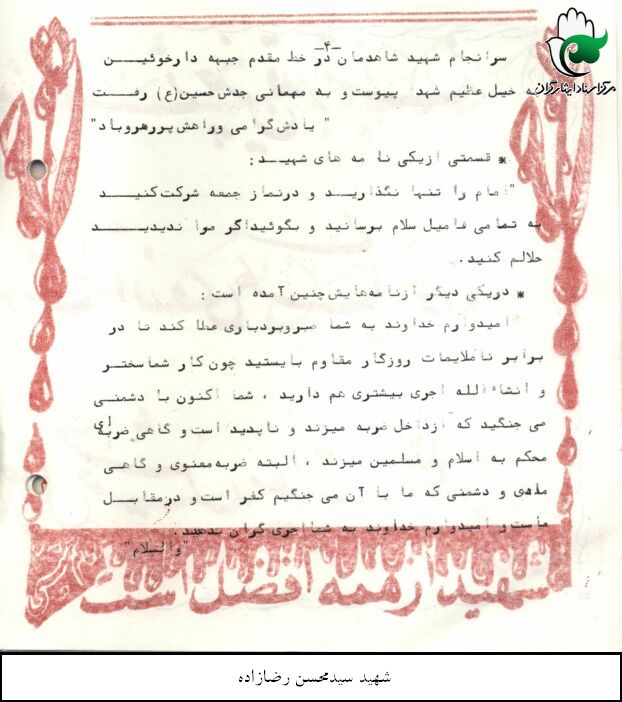 مرکز اسناد ایثارگران
-۴-
سرانجام شهید شاهدمان در خط مقدم جبهه دارخوئین
به خیل عظیم شهدا پیوست و به مهمانی جدش حسین(ع) رفت
" یادش گرامی و راهش پررهرو باد"
* قسمتی از یکی نامه های شهید :
"امام را تنها نگذارید و درنماز جمعه شرکت کنید
به تمامی فامیل سلام برسانید و بگوئید اگر مرا ندیدید
حلالم کنید .
* دریکی دیگر ازنامه‌هایش چنین آمده است :
امیدوارم خداوند به شما صبر و بردباری عطا کند تا در
برابر ناملایمات روزگار مقاوم بایستید چون کار شما سختر
و انشاءالله اجری بیشتری هم دارید ، شما اکنون با دشمنی
می جنگید که ازداخل ضربه میزند و ناپدید است و گاهی ضربه ای
محکم به اسلام و مسلمین میزند ، البته ضربه معنوی و گاهی
مادی و دشمنی که ما با آن می جنگیم کفر است و درمقابل
ماست و امیدوارم خداوند به شما اجری گران بدهید .
"والسلام"
شهید از همه افضل است
شهید سیدمحسن رضازاده